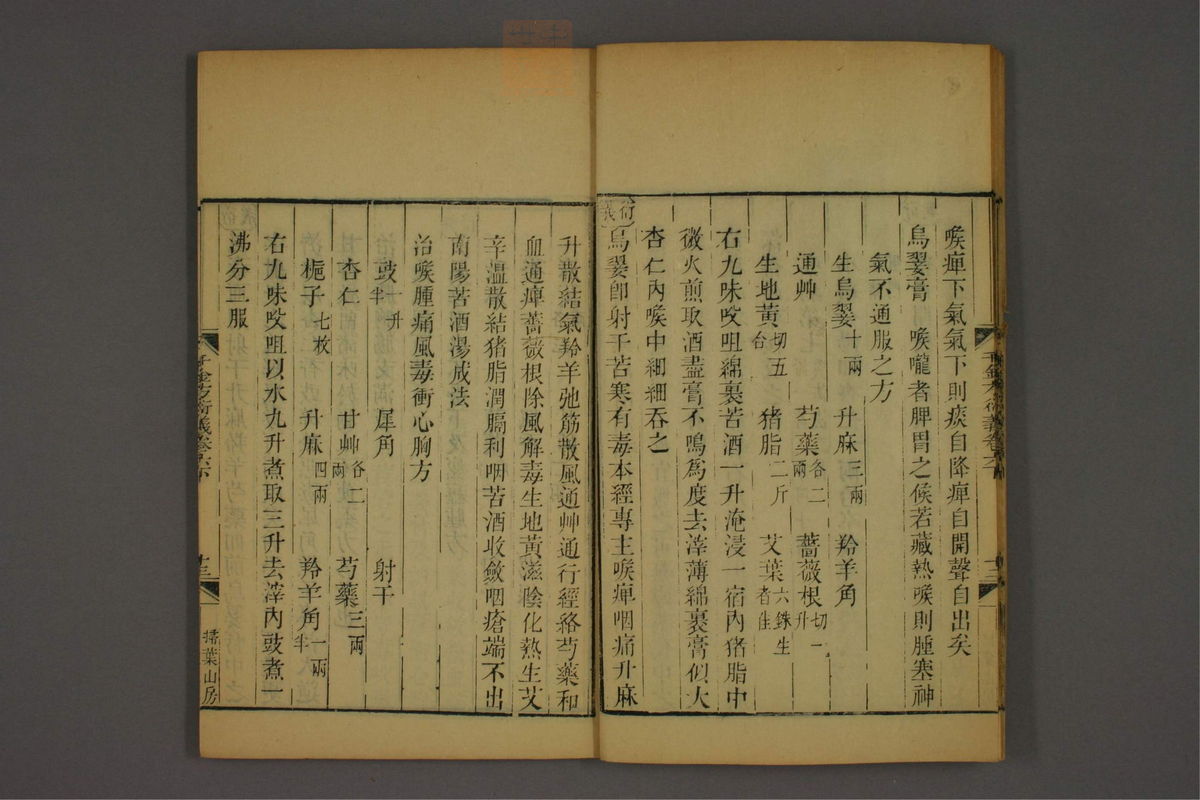 喉痺下氣氣下則痰自降痺自開聲自出矣
烏翣膏　喉嚨者脾胃之候若藏熱喉則腫塞神
氣不通服之方
生烏翣十兩　升麻三兩　羚羊角
通艸　芍藥各二兩　薔薇根切一升
生地黃切五合　猪脂二斤　艾葉六銖生者佳
右九味㕮咀綿裹苦酒一升淹浸一宿內猪脂中
微火煎取酒盡膏不鳴爲度去滓薄綿裹膏似大
杏仁內喉中細細吞之
衍義
烏翣卽射干苦寒有毒本經專主喉痺咽痛升麻
千金方衍義卷六
升散結氣羚羊弛筋散風通艸通行經絡芍藥和
血通痺薔薇根除風解毒生地黃滋陰化熱生艾
辛溫散結猪脂潤膈利咽苦酒收斂咽瘡端不出
南陽苦酒湯成法
治喉腫痛風毒衝心胸方
豉一升半　犀角　射干
杏仁　甘艸各二兩　芍藥三兩
梔子七枚　升麻四兩　羚羊角一兩半
右九味㕮咀以水九升煮取三升去滓內豉煮一
沸分三服
千金方衍義卷六下
十三
掃葉山房